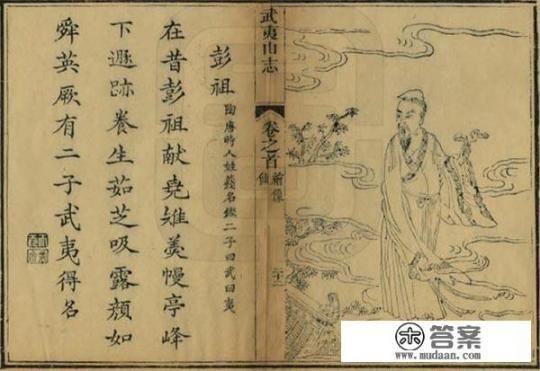 武夷山志
卷之首
繪像
仙
彭祖
陶唐時人姓籛名鏗二子曰武曰夷
在昔彭祖獻堯雉羹幔亭峰
下遯跡養生茹芝吸露顏如
舜英厥有二子武夷得名
答案
www.mudaan.com